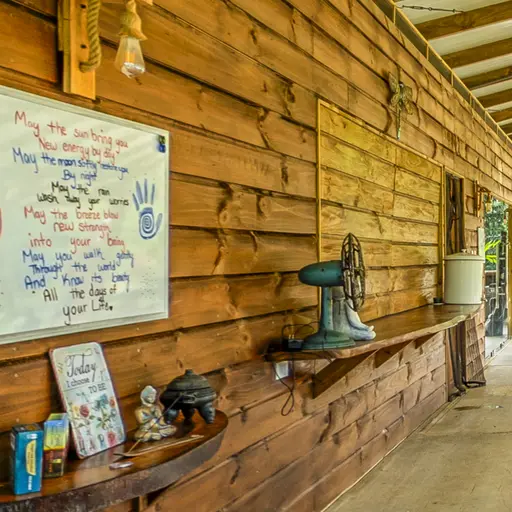 May the sun bring you
New energy by day
May the moon softly restore you
By night
May the rain
wash away your worries
May the breeze blow
new strength
into your being
May you walk gently
Through the world
And know its beauty
All the days of
your Life
Today
I choose
TO BE